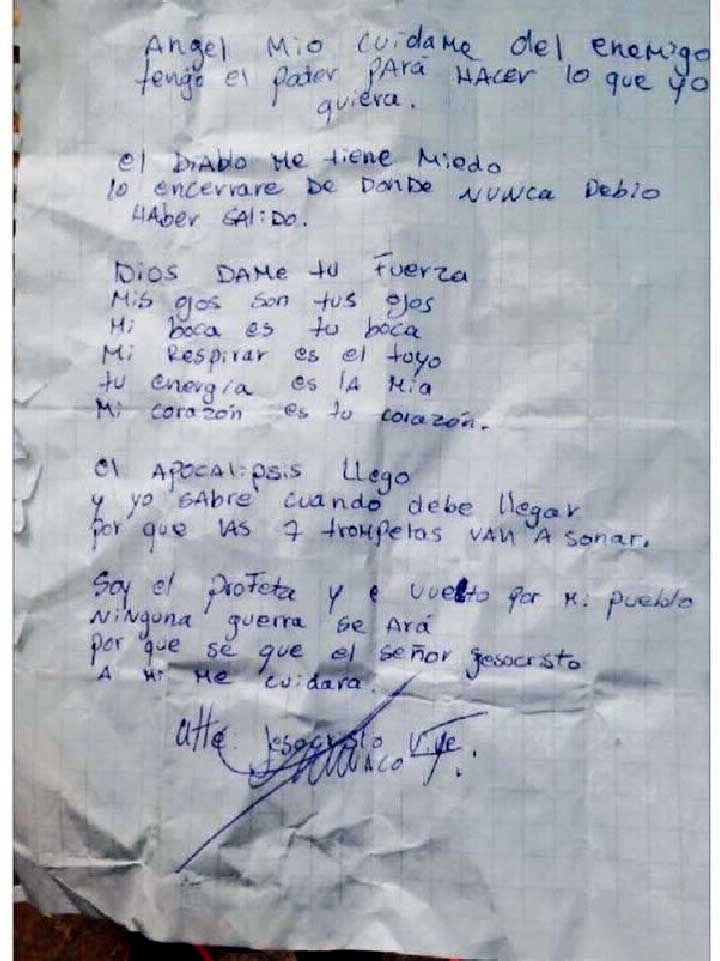 Angel Mio cuidame del enemigo
tengo el poder pARA HAcer lo que yo
quiera.
el DiAblo Me tiene Miedo
lo encerrare De DonDe NUNca Debio
HAber SAliDo.
Dios DAMe tu Fuerza
Mis ojos son tus ojos
Mi boca es tu boca
Mi Respirar es el tuyo
tu energía es lA Mia
Mi corazón es tu corazón.
el APOCAlipsis LLego
y yo sAbre cuando debe llegar
por que lAS 7 trompetas vAN A sonar.
Soy el profeta y e vuelto por Mi pueblo
Ninguna guerra se Ará
por que se que el señor Jesocristo
A Mi Me cuidara.
atte. Jesocristo Vive.